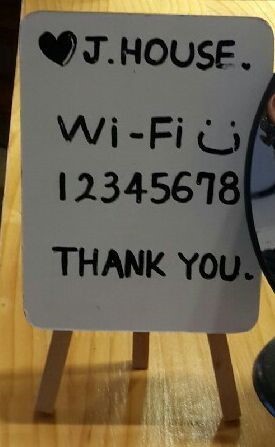 ♥J.HOUSE.
Wi-Fi
12345678
THANK YOU.